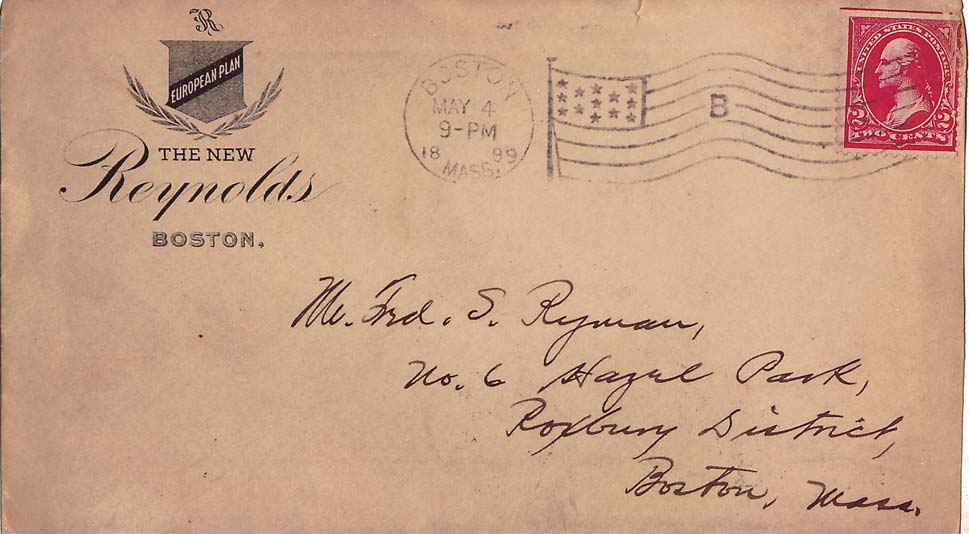 R
EUROPEAN PLAN
THE NEW
Reynolds
BOSTON.
BOSTON
MAY 4
9-PM
18 99
MASS.
B
UNITED STATES POSTAGE
2 2
TWO CENTS
Mr. Fred. S. Ryman,
No. 6 Hazel Park,
Roxbury District,
Boston, Mass.